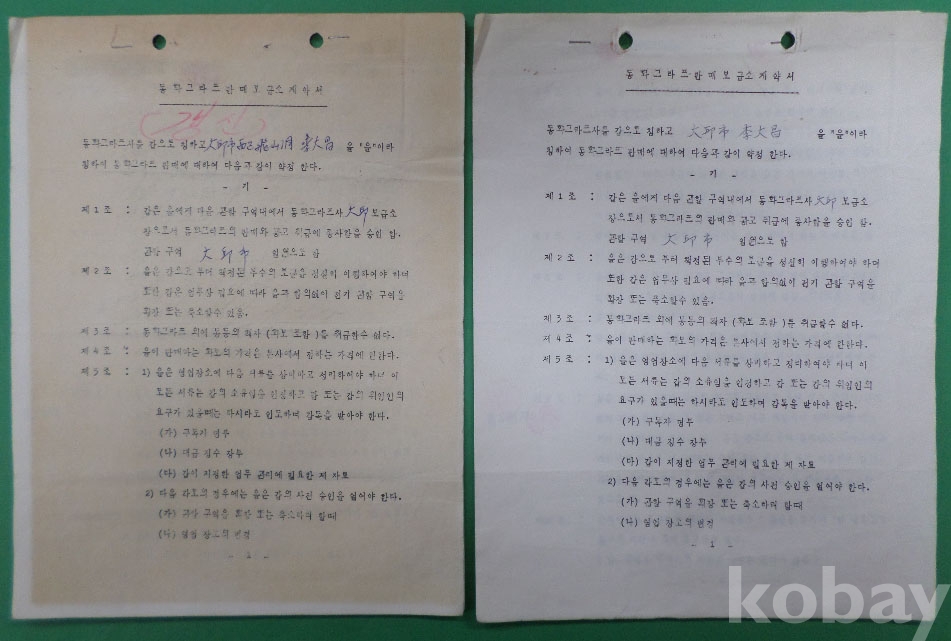 동화그라프판매보급소계약서
(갱신)
동화그라프사를 갑으로 칭하고 大邱市 李大昌 을 "을"이라
칭하여 동화그라프 판매에 대하여 다음과 같이 약정 한다.
- 기 -
제 1 조 : 갑은 을에게 다음 관할 구역내에서 동화그라프사 大邱 보급소
장으로서 동화그라프의 판매와 광고 취급에 종사함을 승인 함.
관할 구역 大邱市 일원으로 함
제 2 조 : 을은 갑으로 부터 책정된 부수의 보급을 성실히 이행하여야 하며
또한 갑은 업무상 필요에 따라 을과 합의없이 전기 관할 구역을
확장 또는 축소할수 있음.
제 3 조 : 동화그라프 외에 동등의 책자 (화보 포함) 를 취급할수 없다.
제 4 조 : 을이 판매하는 화보의 가격은 본사에서 정하는 가격에 한한다.
제 5 조 : 1) 을은 영업장소에 다음 서류를 상비하고 정리하여야 하며 이
모든 서류는 갑의 소유임을 인정하고 갑 또는 갑의 위임인의
요구가 있을때는 하시라도 인도하며 감독을 받아야 한다.
(가) 구독자 명부
(나) 대금 징수 장부
(다) 갑이 지정한 업무 관리에 필요한 제 자료
2) 다음 각호의 경우에는 을은 갑의 사전 승인을 얻어야 한다.
(가) 관할 구역을 확장 또는 축소하려 할때
(나) 영업 장소의 변경
- 1 -
동화그라프판매보급소계약서
동화그라프사를 갑으로 칭하고 大邱市 李大昌 을 "을"이라
칭하여 동화그라프 판매에 대하여 다음과 같이 약정 한다.
- 기 -
제 1 조 : 갑은 을에게 다음 관할 구역내에서 동화그라프사 大邱 보급소
장으로서 동화그라프의 판매와 광고 취급에 종사함을 승인 함.
관할 구역 大邱市 일원으로 함
제 2 조 : 을은 갑으로 부터 책정된 부수의 보급을 성실히 이행하여야 하며
또한 갑은 업무상 필요에 따라 을과 합의없이 전기 관할 구역을
확장 또는 축소할수 있음.
제 3 조 : 동화그라프 외에 동등의 책자 (화보 포함) 를 취급할수 없다.
제 4 조 : 을이 판매하는 화보의 가격은 본사에서 정하는 가격에 한한다.
제 5 조 : 1) 을은 영업장소에 다음 서류를 상비하고 정리하여야 하며 이
모든 서류는 갑의 소유임을 인정하고 갑 또는 갑의 위임인의
요구가 있을때는 하시라도 인도하며 감독을 받아야 한다.
(가) 구독자 명부
(나) 대금 징수 장부
(다) 갑이 지정한 업무 관리에 필요한 제 자료
2) 다음 각호의 경우에는 을은 갑의 사전 승인을 얻어야 한다.
(가) 관할 구역을 확장 또는 축소하려 할때
(나) 영업 장소의 변경
- 1 -
kobay